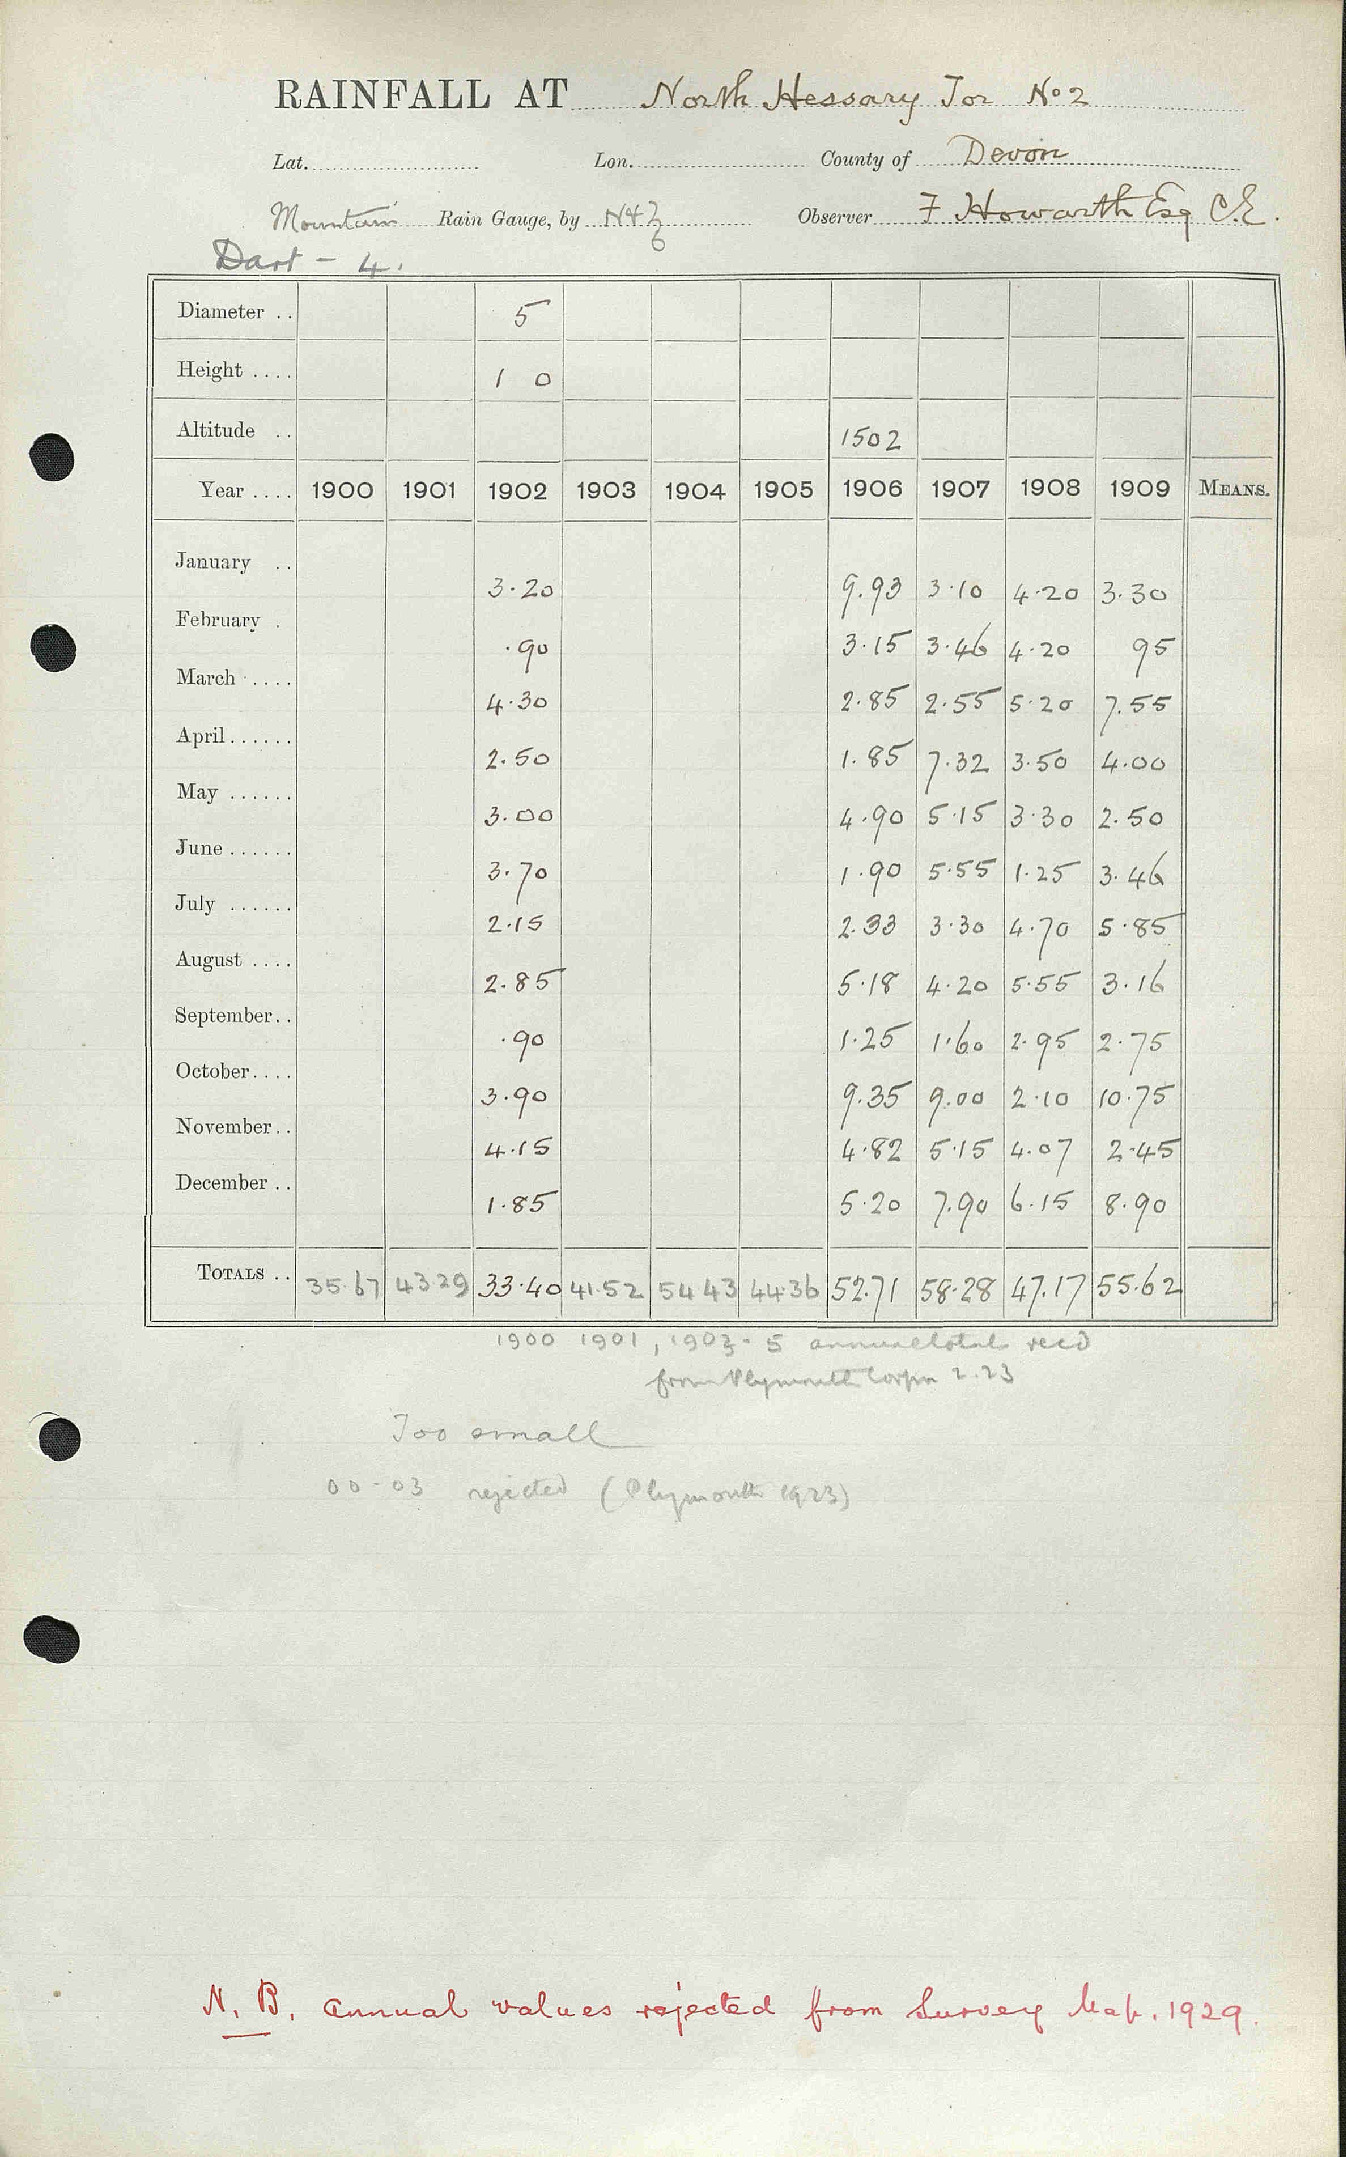 RAINFALL AT North Hessary Tor No 2
Lat. Lon. County of Devon
Mountain Rain Gauge, by N&Z Observer F Howarth Esq C.E.
Dart - 4.
Diameter .. 5
Height .... 1 0
Altitude .. 1502
Year .... 1900 1901 1902 1903 1904 1905 1906 1907 1908 1909 MEANS.
January .. 3.20 9.93 3.10 4.20 3.30
February . .90 3.15 3.46 4.20 95
March .... 4.30 2.85 2.55 5.20 7.55
April...... 2.50 1.85 7.32 3.50 4.00
May ...... 3.00 4.90 5.15 3.30 2.50
June ...... 3.70 1.90 5.55 1.25 3.46
July ...... 2.15 2.33 3.30 4.70 5.85
August .... 2.85 5.18 4.20 5.55 3.16
September.. .90 1.25 1.60 2.95 2.75
October.... 3.90 9.35 9.00 2.10 10.75
November.. 4.15 4.82 5.15 4.07 2.45
December .. 1.85 5.20 7.90 6.15 8.90
TOTALS .. 35.67 43.29 33.40 41.52 54.43 44.36 52.71 58.28 47.17 55.62
1900 1901, 1903-5 annual totals recd
from Plymouth Corpn 2.23
Too small
00-03 rejected (Plymouth 1923)
N.B. annual values rejected from Survey Map. 1929.